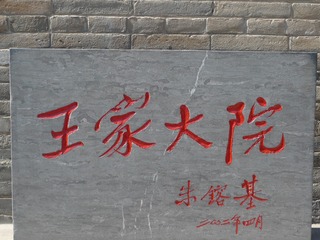 王家大院
朱镕基
二〇〇二年四月